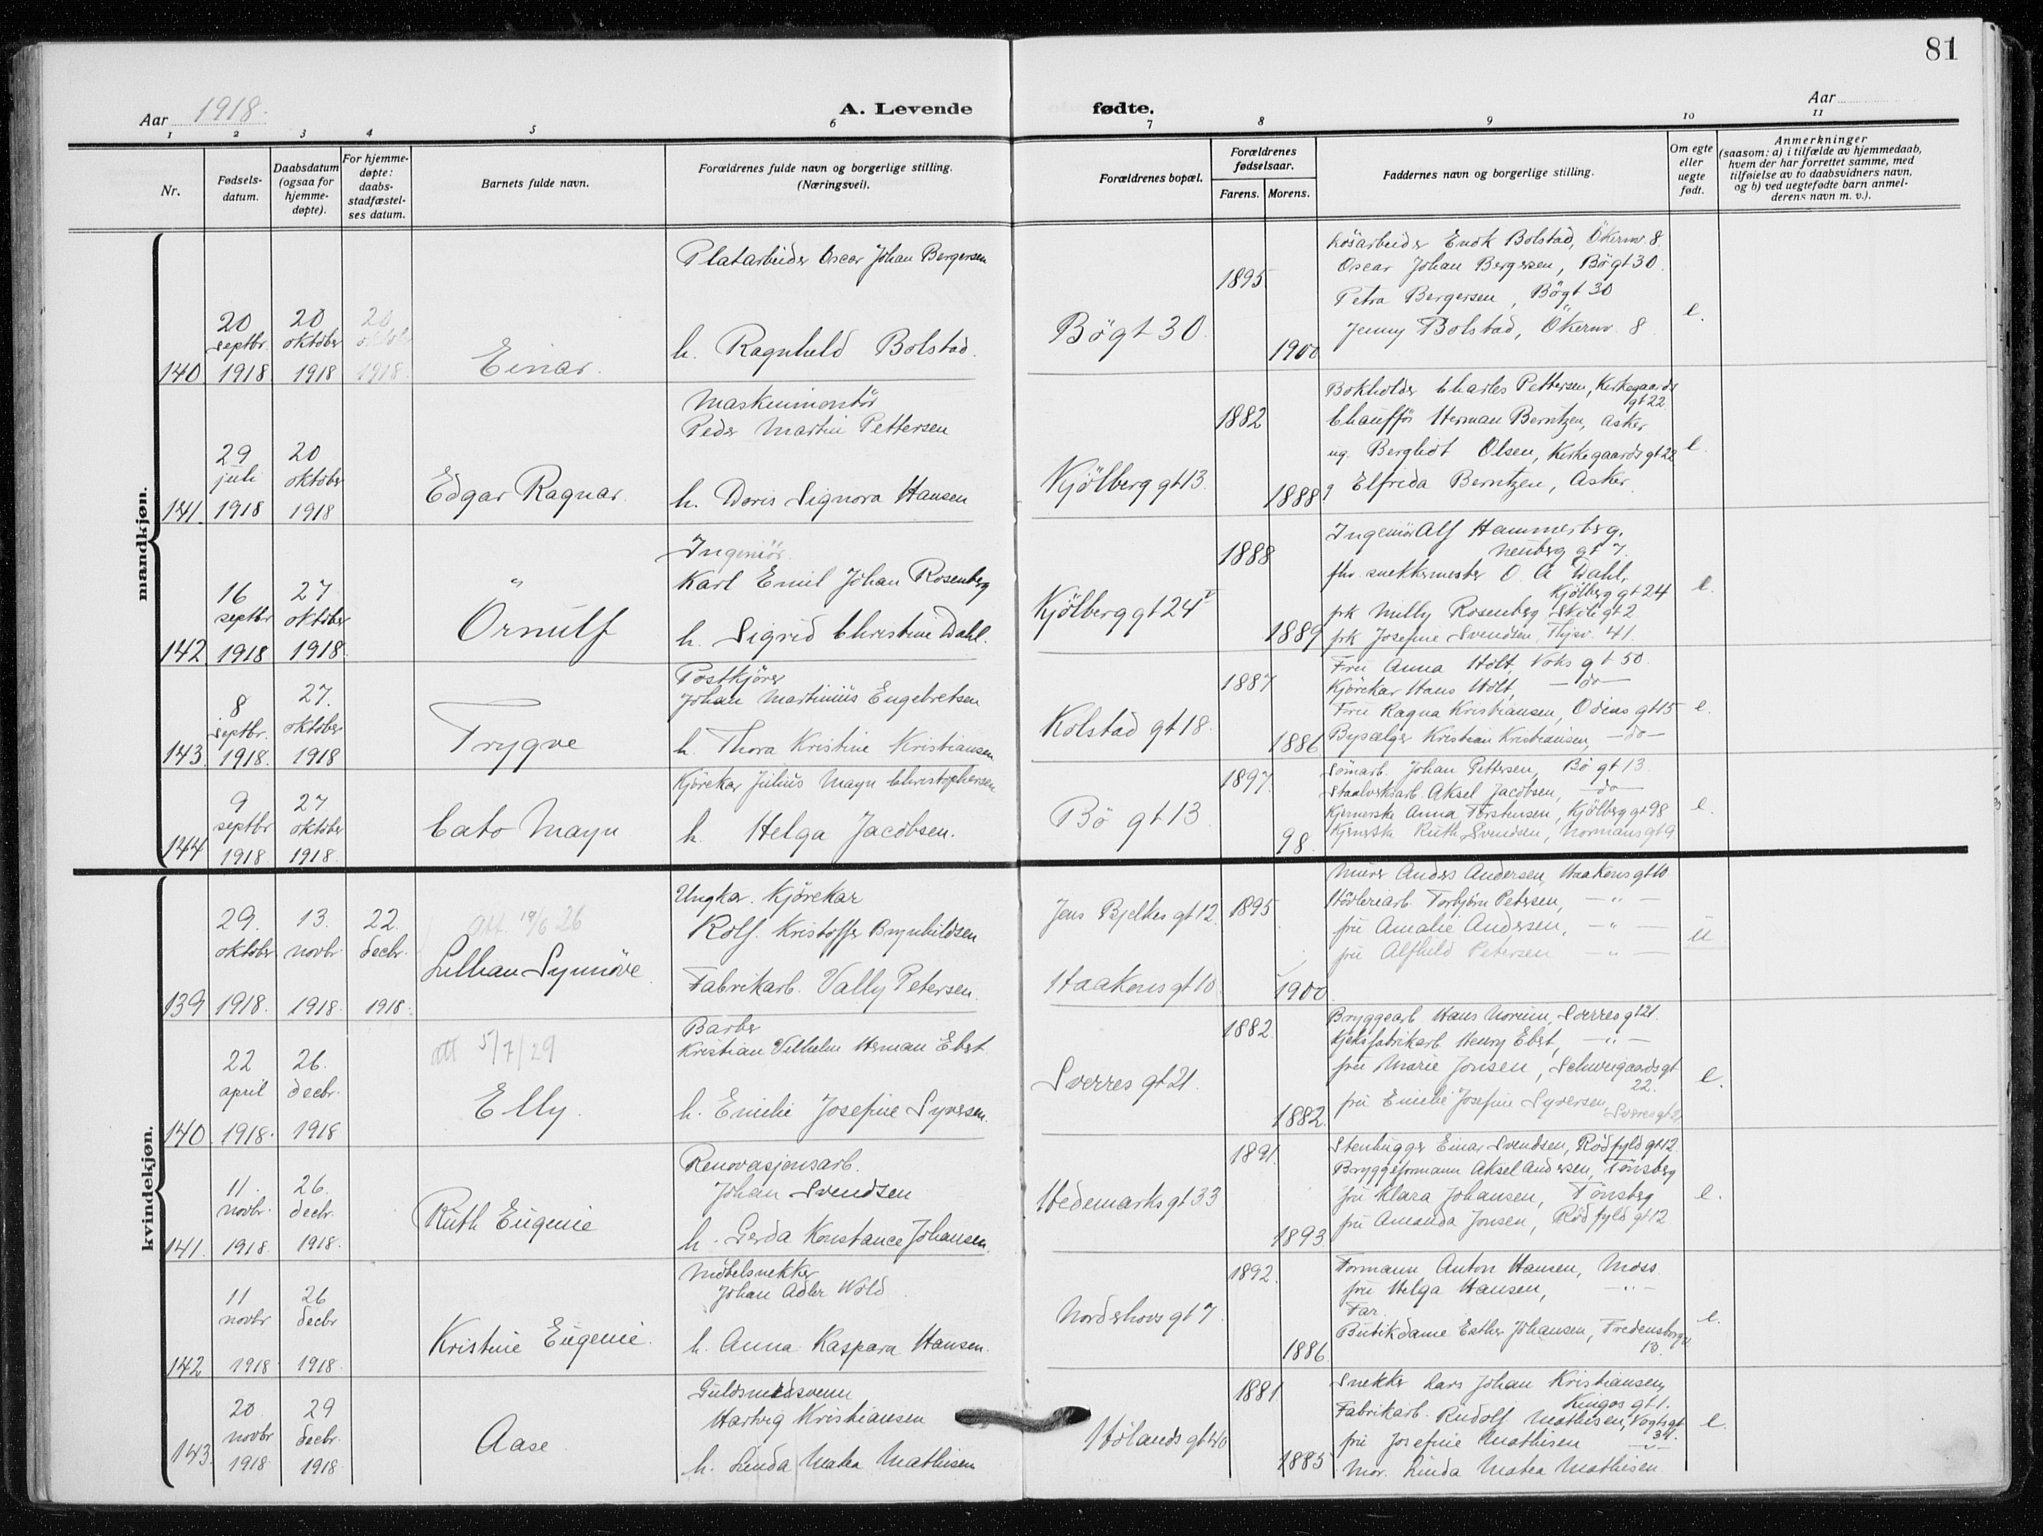 81
Aar 1918.
A. Levende fødte.
Aar
1 2 3 4 5 6 7 8 9 10 11
Nr.
Fødsels-
datum.
Daabsdatum
(ogsaa for
hjemme-
døpte).
For hjemme-
døpte:
daabs-
stadfæstel-
ses datum.
Barnets fulde navn.
Forældrenes fulde navn og borgerlige stilling.
(Næringsvei).
Forældrenes bopæl.
Forældrenes
fødselsaar.
Farens. Morens.
Faddernes navn og borgerlige stilling.
Om egte
eller
uegte
født.
Anmerkninger
(saasom: a) i tilfælde av hjemmedaab,
hvem der har forrettet samme, med
tilføielse av to daabsvidners navn,
og b) ved uegtefødte barn anmel-
derens navn m. v.).
mandkjøn.
140
20
septbr.
1918
20
oktober
1918
20
oktober
1918.
Einar.
Platarbeider Oscar Johan Bergersen
h. Ragnhild Bolstad.
Bögt 30.
1895
1900
Løsarbeider Enok Bolstad, Ökernv 8.
Oscar Johan Bergersen, Bögt 30.
Petra Bergersen, Bögt 30
Jenny Bolstad, Ökernv. 8.
e.
141.
29
juli
1918
20
oktober
1918
Edgar Ragnar.
Maskinmontör
Peder Martin Pettersen
h. Doris Signora Hansen
Kjölberg gt 13.
1882
1888
Bokholder Charles Pettersen, Kirkegaards
gt 22
Chaufför Herman Berntzen, Asker
ug. Bergliot Olsen, Kirkegaards gt 22
Elfrida Berntzen, Asker.
e.
142
16
septbr
1918
27
oktober
1918.
Örnulf
Ingeniør.
Karl Emil Johan Rosenberg
h. Sigrid Christine Dahl.
Kjölberg gt 24
1888
1889
Ingeniör Alf Hammerberg,
Neuberg gt 7.
fhv. snekkermester O. A Dahl,
Kjölberg gt 24
frk Milly Rosenberg Skole gt 2
frk Josefine Svendsen, 41.
e.
143.
8
septbr.
1918.
27.
oktober
1918
Trygve
Postkjører
Johan Martinius Engebretsen
h. Thora Kristine Kristiansen
Kolstad gt 18.
1887
1886
Fru Anna Holt, Voks gt 50.
Kjørekar Hans Holt, — do —
Fru Ragna Kristiansen, Odins gt 15
Bypælger Kristian Kristiansen, — do —
e.
144
9
septbr
1918
27
oktober
1918.
Cato Mayn
Kjørekar Julius Mayn Christophersen
h. Helga Jacobsen.
Bö gt 13.
1897
98.
Sömarb. Johan Pettersen, Bö gt 13.
Staalverksarb. Aksel Jacobsen, — do —
Anna Torstensen, Kjölberg gt 98
Ruth Svendsen, Normans gt 9
e.
kvindekjøn.
139
29.
oktober
1918.
13.
novbr.
1918.
22.
decbr.
1918.
Att. 19/6 26
Lillian Synnöve.
Ungkar. Kjørekar
Rolf. Kristoffer Brynhildsen
Fabrikarb. Vally Petersen.
Jens Bjelkes gt 12
Haakons gt 10
1895
1900
Murer Anders Andersen, Haakons gt 10
Hövleriarb. Torbjørn Petersen, — " —
fru Amalie Andersen, — " —
fru Alfhild Petersen — " —
u
140
22
april
1918.
26.
decbr.
1918
att 5/7/29
Elly.
Barber
Kristian Vilhelm Herman Ebst
h. Emilie Josefine Syversen.
Sverres gt 21.
1882
1882.
Bryggearb Hans Norum, Sverres gt 21.
Kjeksfabrikarb. Henry Ebst, — " —
fru Marie Jonsen, Schweigaards gt
22.
fru Emelie Josefine Syversen,
Sverres gt 21
e.
141.
11.
novbr.
1918
26.
decbr.
1918.
Ruth Eugenie
Renovasjonsarb.
Johan Svendsen
h. Gerda Konstance Johansen.
Hedemarks gt 33
1891.
1893
Stenhugger Einar Svendsen, Rödfyld gt 12.
Bryggeformann Aksel Andersen, Tönsberg
fru Klara Johansen, Tönsberg
fru Amanda Jonsen, Rödfyld gt 12
e.
142
11
novbr
1918
26
decbr
1918.
Kristine Eugenie.
Møbelsnekker
Johan Adler Wold.
h. Anna Kaspara Hansen.
Nordshovs gt 7
1892.
1886.
Formann Anton Hansen, Moss.
fru Helga Hansen, — " —
Far.
Butikdame Esther Johansen, Fredensborgv
10.
e.
143.
20
novbr
1918
29
decbr.
1918.
Aase
Guldsmedsvenn
Hartvig Kristiansen
h. Linda Matea Mathisen
Hölands gt 40
1881
1885
Snekker Lars Johan Kristiansen,
Kingos gt 1.
Fabrikarb. Rudolf Mathisen, Vogts gt
34.
fru Josefine Mathisen — " —
Mor. Linda Matea Mathisen
e.